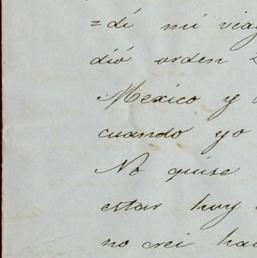 =dí mi viag
dió orden
Mexico y
cuando yo
No quise
estar huy
no crei hac